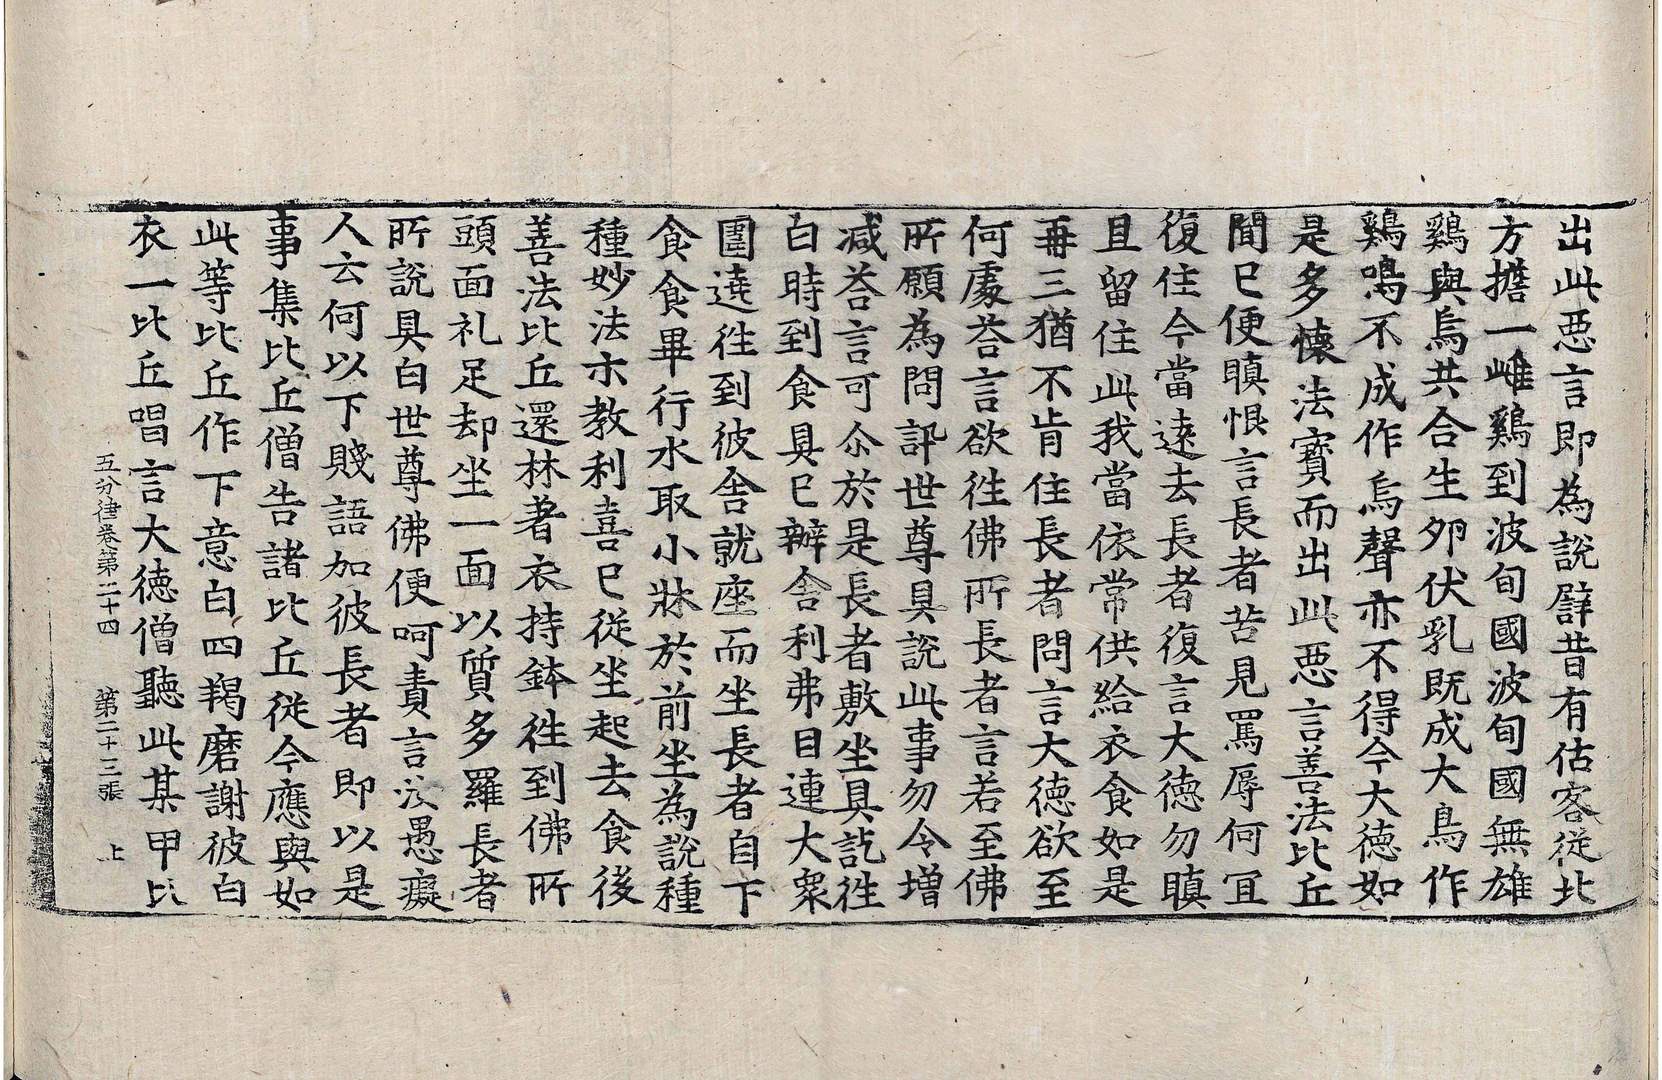 出此惡言即為說譬昔有估客從北
方擔一雌鷄到波旬國波旬國無雄
鷄與烏共合生夘伏乳既成大鳥作
鷄鳴不成作烏聲亦不得今大德如
是多懷法寶而出此惡言善法比丘
聞已便瞋恨言長者苦見罵辱何冝
復住今當遠去長者復言大德勿瞋
且留住此我當依常供給衣食如是
再三猶不肯住長者問言大德欲至
何處荅言欲徃佛所長者言若至佛
所願為問訊世尊具說此事勿令增
減荅言可尒於是長者敷坐具訖徃
白時到食具已辦舍利弗目連大衆
圍遶徃到彼舍就座而坐長者自下
食食畢行水取小牀於前坐為說種
種妙法示教利喜已從坐起去食後
善法比丘還林著衣持鉢徃到佛所
頭面礼足却坐一面以質多羅長者
所說具白世尊佛便呵責言汝愚癡
人云何以下賤語加彼長者即以是
事集比丘僧告諸比丘從今應與如
此等比丘作下意白四羯磨謝彼白
衣一比丘唱言大德僧聽此某甲比
五分律卷第二十四 第二十三張 上